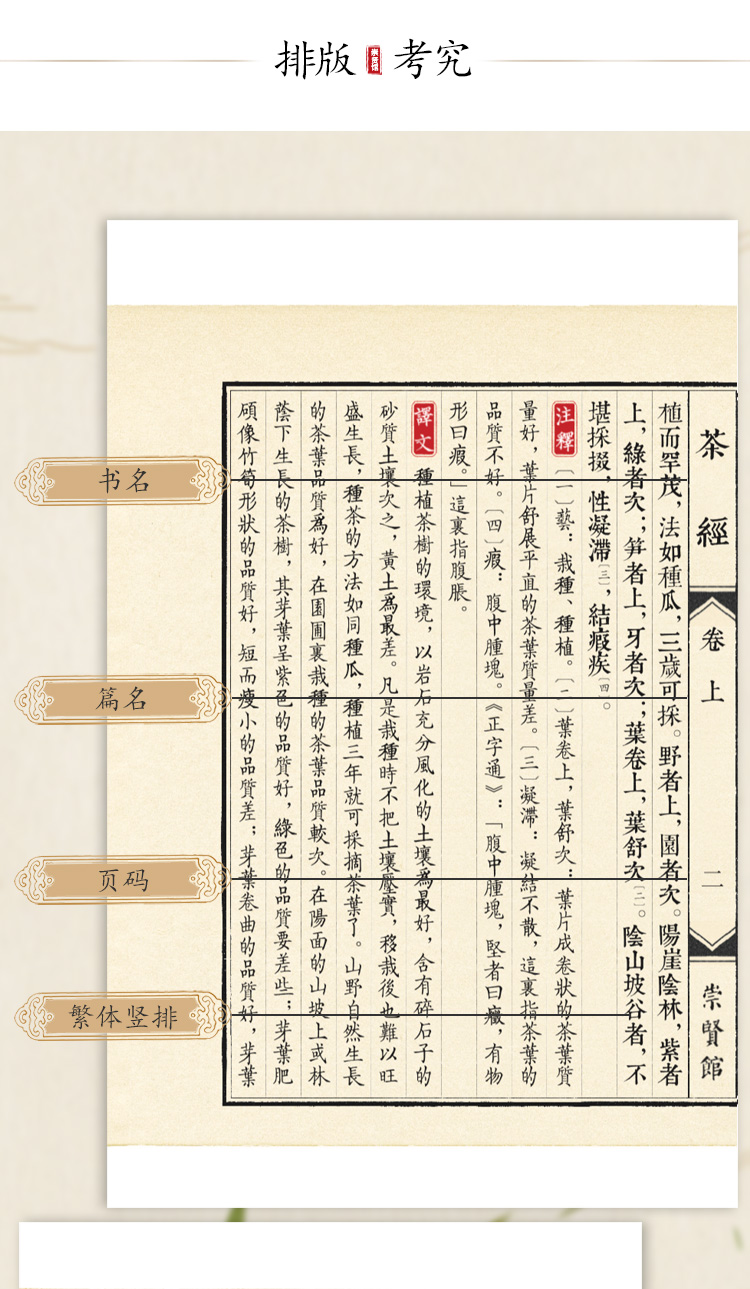 排版 崇賢館 考究
茶經
卷上
二
崇賢館
植而罕茂，法如種瓜，三歲可採。野者上，園者次。陽崖陰林，紫者
上，綠者次；笋者上，牙者次；葉卷上，葉舒次〔二〕。陰山坡谷者，不
堪採掇，性凝滯〔三〕，結瘕疾〔四〕。
注釋 〔一〕藝：栽種、種植。〔二〕葉卷上，葉舒次：葉片成卷狀的茶葉質
量好，葉片舒展平直的茶葉質量差。〔三〕凝滯：凝結不散，這裏指茶葉的
品質不好。〔四〕瘕：腹中腫塊。《正字通》：「腹中腫塊，堅者曰癥，有物
形曰瘕。」這裏指腹脹。
譯文 種植茶樹的環境，以岩石充分風化的土壤爲最好，含有碎石子的
砂質土壤次之，黃土爲最差。凡是栽種時不把土壤壓實，移栽後也難以旺
盛生長，種茶的方法如同種瓜，種植三年就可採摘茶葉了。山野自然生長
的茶葉品質爲好，在園圃裏栽種的茶葉品質較次。在陽面的山坡上或林
蔭下生長的茶樹，其芽葉呈紫色的品質好，綠色的品質要差些；芽葉肥
碩像竹筍形狀的品質好，短而瘦小的品質差；芽葉卷曲的品質好，芽葉
书名
篇名
页码
繁体竖排